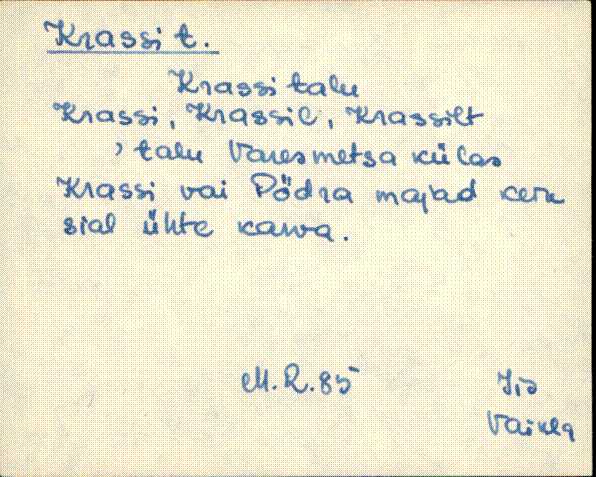 Krassi t.
Krassi talu
Krassi, Krassil, Krassilt
, talu Varesmetsa külas
Krassi vai Põdra majad
sial ühte kawa.
M.R. 85
Vaikla